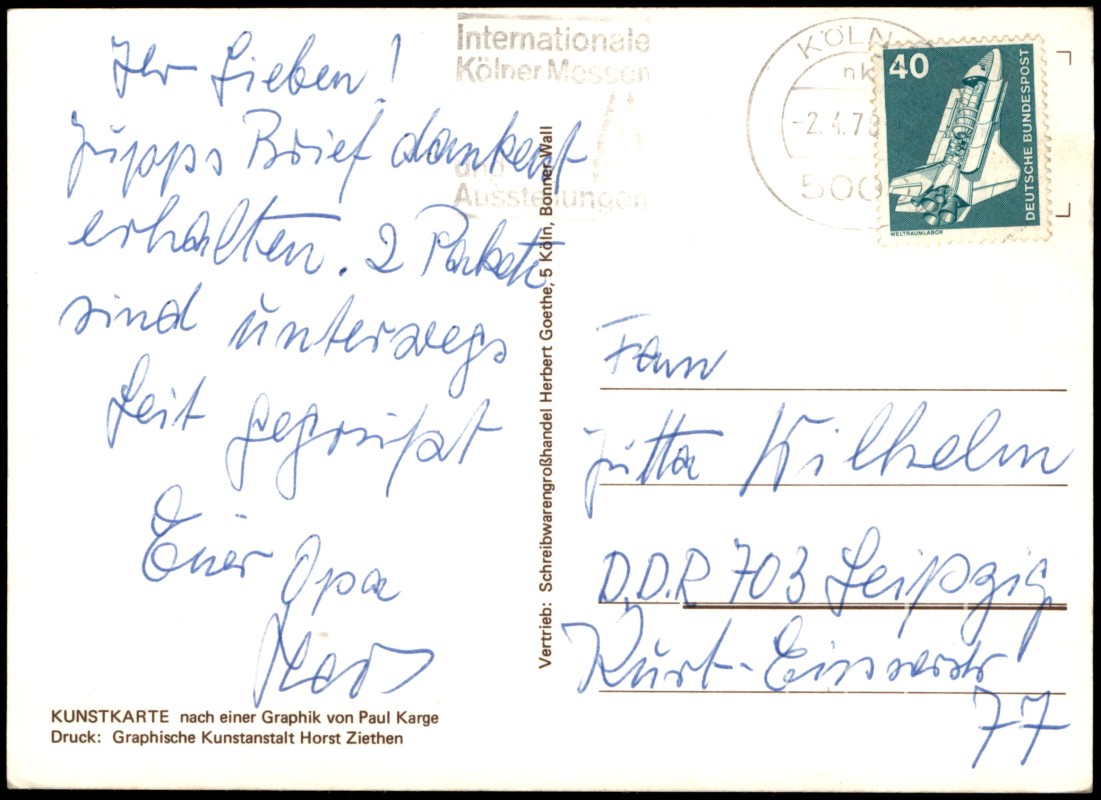 Ihr Lieben!
Jupps Brief dankend
erhalten. 2 Pakete
sind unterwegs
Seit gegrüßt
Euer Opa
Internationale
Kölner Messen
und
Ausstellungen
KÖLN
-2.4.7
500
40
DEUTSCHE BUNDESPOST
WELTRAUMLABOR
Vertrieb: Schreibwarengroßhandel Herbert Goethe, 5 Köln, Bonner Wall
Frau
Jutta Wilhelm
D.D.R 703 Leipzig
Kurt-Eisnerstr
77
KUNSTKARTE nach einer Graphik von Paul Karge
Druck: Graphische Kunstanstalt Horst Ziethen